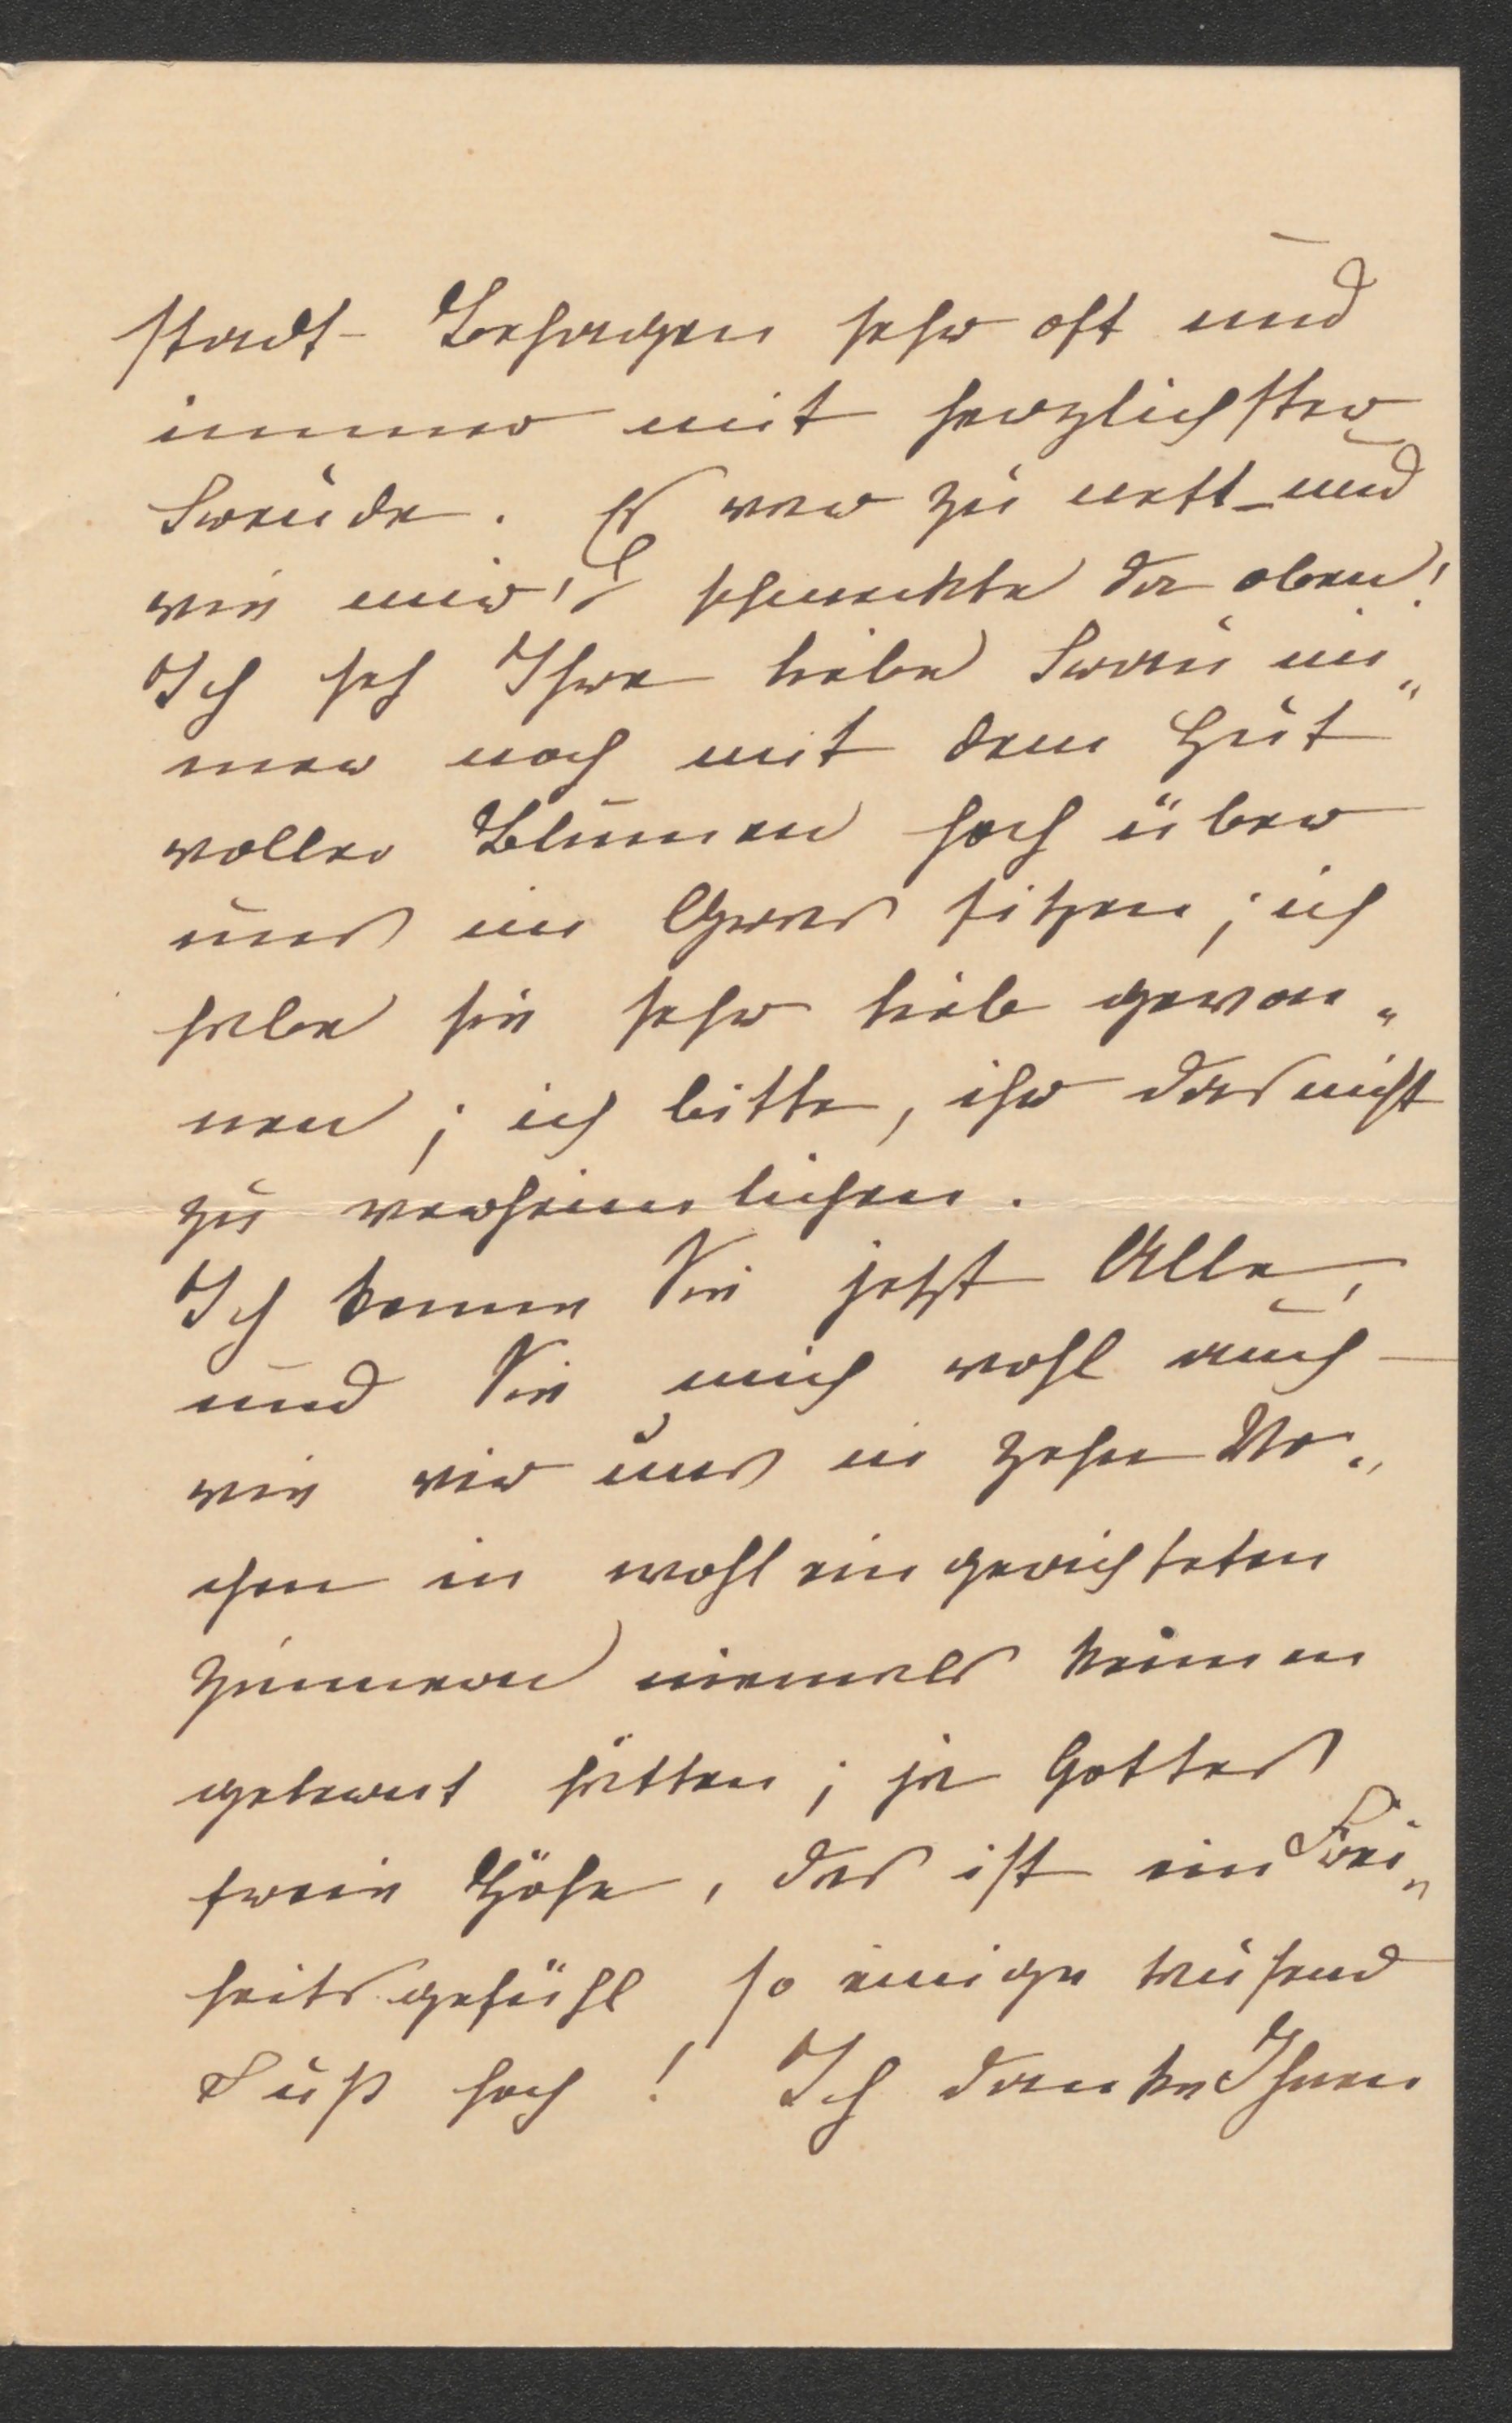 stadt- Behagen sehr oft und
immer mit herzlichster
Freude. Es war zu nett und
wie mir's schmeckte da oben!
Ich seh Ihre liebe Frau im„
mer noch mit dem Hut
voller Blumen hoch über
uns im Gras sitzen; ich
habe sie sehr lieb gewon„
nen; ich bitte, ihr das nicht
zu verheimlichen.
Ich kenne Sie jetzt Alle,
und Sie mich wohl auch –
wie wir uns in zehn Wo„
chen in wohl eingerichteten
Zimmern niemals kennen
gelernt hätten; ja Gottes
freie Höhe, das ist ein Frei„
heitsgefühl so einige tausend
Fuß hoch! Ich danke Ihnen